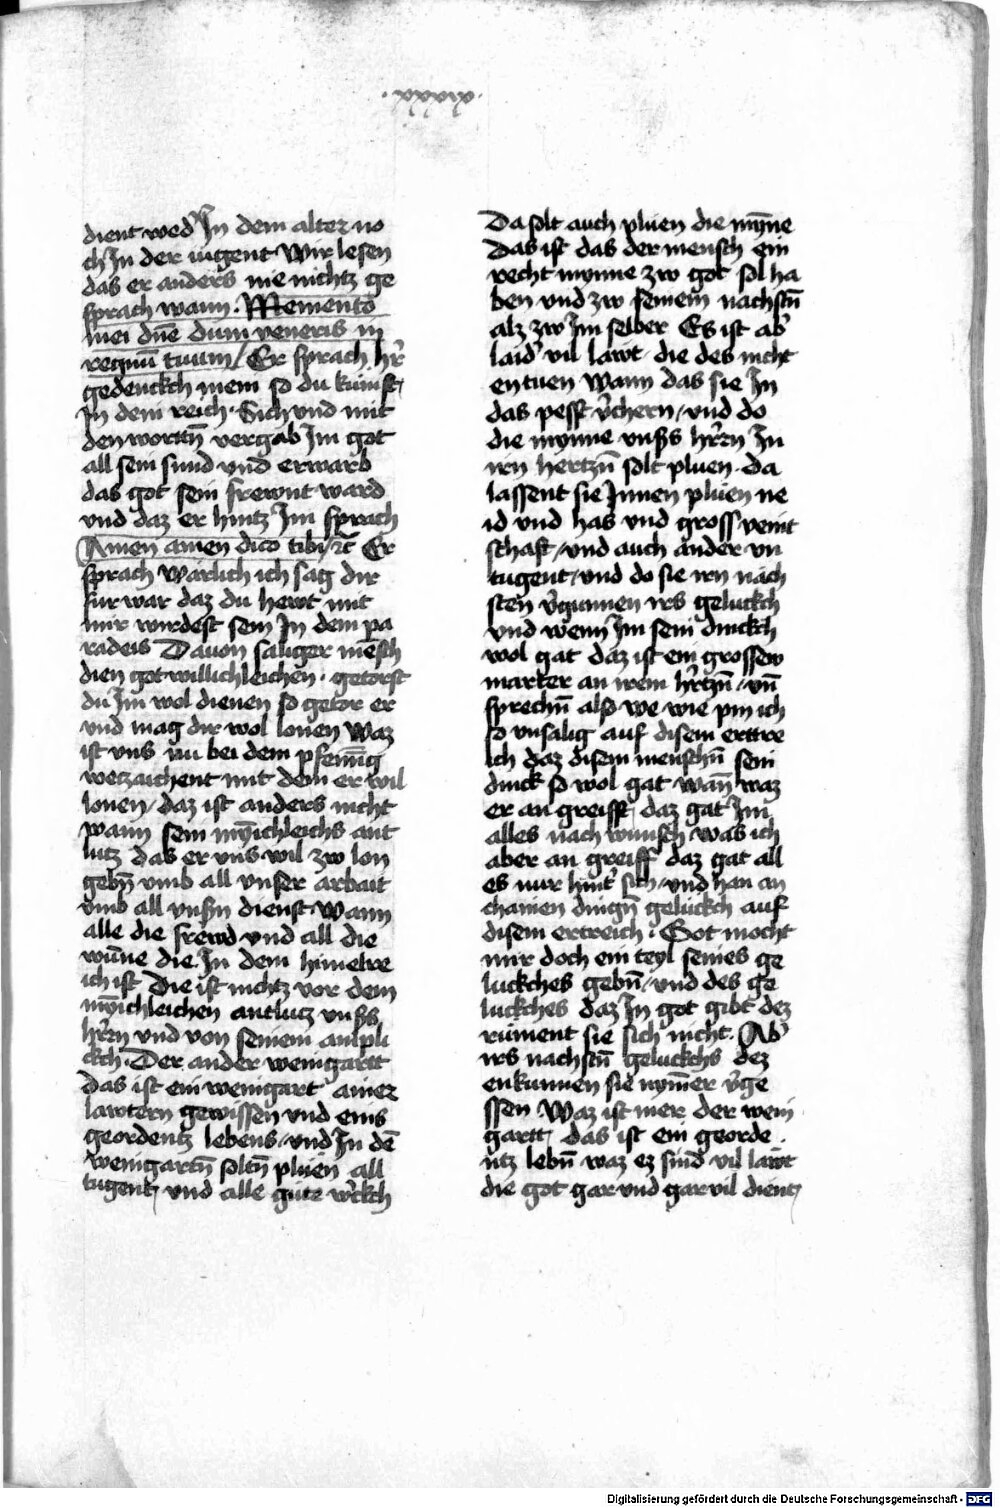 ·xxxix·
dient wed' In dem alter no
ch In der iugent Wir lesen
das er anders nie nichtz ge
sprach wann · Memento
mei dn̄e dum veneris in
regnū tuum / Er sprach hr̄
gedenckch mein so du kumst
In dem reich · Sich vnd mit
den wortn̄ vergab Im got
all sein sund vnd erwarb
das got sein frewnt ward
vnd daz er hintz Im sprach
Amen amen dico tibi / ⁊c̄ Er
sprach warlich ich sag dir
fur war daz du hewt mit
mir wirdest sein In dem pa
radeis Dauon saliger mēsch
dien got willichleichen · getorst
du Im wol dienen so getor er
vnd mag dir wol lonen Waz
ist vns nu bei dem pfennīg
wetzaichent mit dem er wil
lonen / daz ist anders nicht
wann sein mȳichleichs ant
lutz das er vns wil zw lon
gebn̄ vmb all vnser arbait
vmb all vnsn̄ dienst · Wann
alle die frewd vnd all die
wun̄e die In dem himelre
ich ist Die ist nichtz vor dem
mȳichleichen antlutz vnsß
hr̄en vnd von seinem anpli
ckch · Der ander weingartt
das ist ein weingart ainer
lawtern gewissen vnd eins
geordentz lebens / vnd In dē
weingartn̄ soltn̄ pluen all
tugent / vnd alle gute w'ckch
Da solt auch pluen die mȳne
Das ist das der mensch ein
recht mynne zw got sol ha
ben vnd zw seinem nachstn̄
alz zw Im selber Es ist ab'
laid' vil lawt die des nicht
entuen Wann das sie In
das pesst v'chern / vnd do
die mynne vnsß hr̄en In
irn hertzn̄ solt pluen · da
lassent sie Innen pluen ne
id vnd has vnd gross veint
schaft / vnd auch ander vn
tugent / vnd do sie irn nach
sten v'gunnen irs geluckch
vnd wenn Im sein dinckch
wol gat daz ist ein grossew
marter an irem hr̄tzn̄ / vn̄
sprechn̄ also we wie pin ich
so vnsalig auf disem erttre
ich daz disem menschn̄ sein
dinck so wol gat · wan̄ waz
er an greifft / daz gat Im
alles nach wunsch was ich
aber an greiff daz gat all
es nur hint' sich / vnd han an
chainen dingn̄ geluckch auf
disem ertreich · Got mocht
mir doch ein teyl seines ge
luckches gebn̄ / vnd des ge
luckches daz In got gibt dez
rument sie sich nicht · Ab'
irs nachstn̄ geluckchs dez
enkunnen sie nym̄er v'ge
ssen Waz ist mer der wein
gartt / das ist ein georde
ntz lebn̄ waz ez sind vil lawt
die got gar vnd gar vil dient
Digitalisierung gefördert durch die Deutsche Forschungsgemeinschaft - DFG